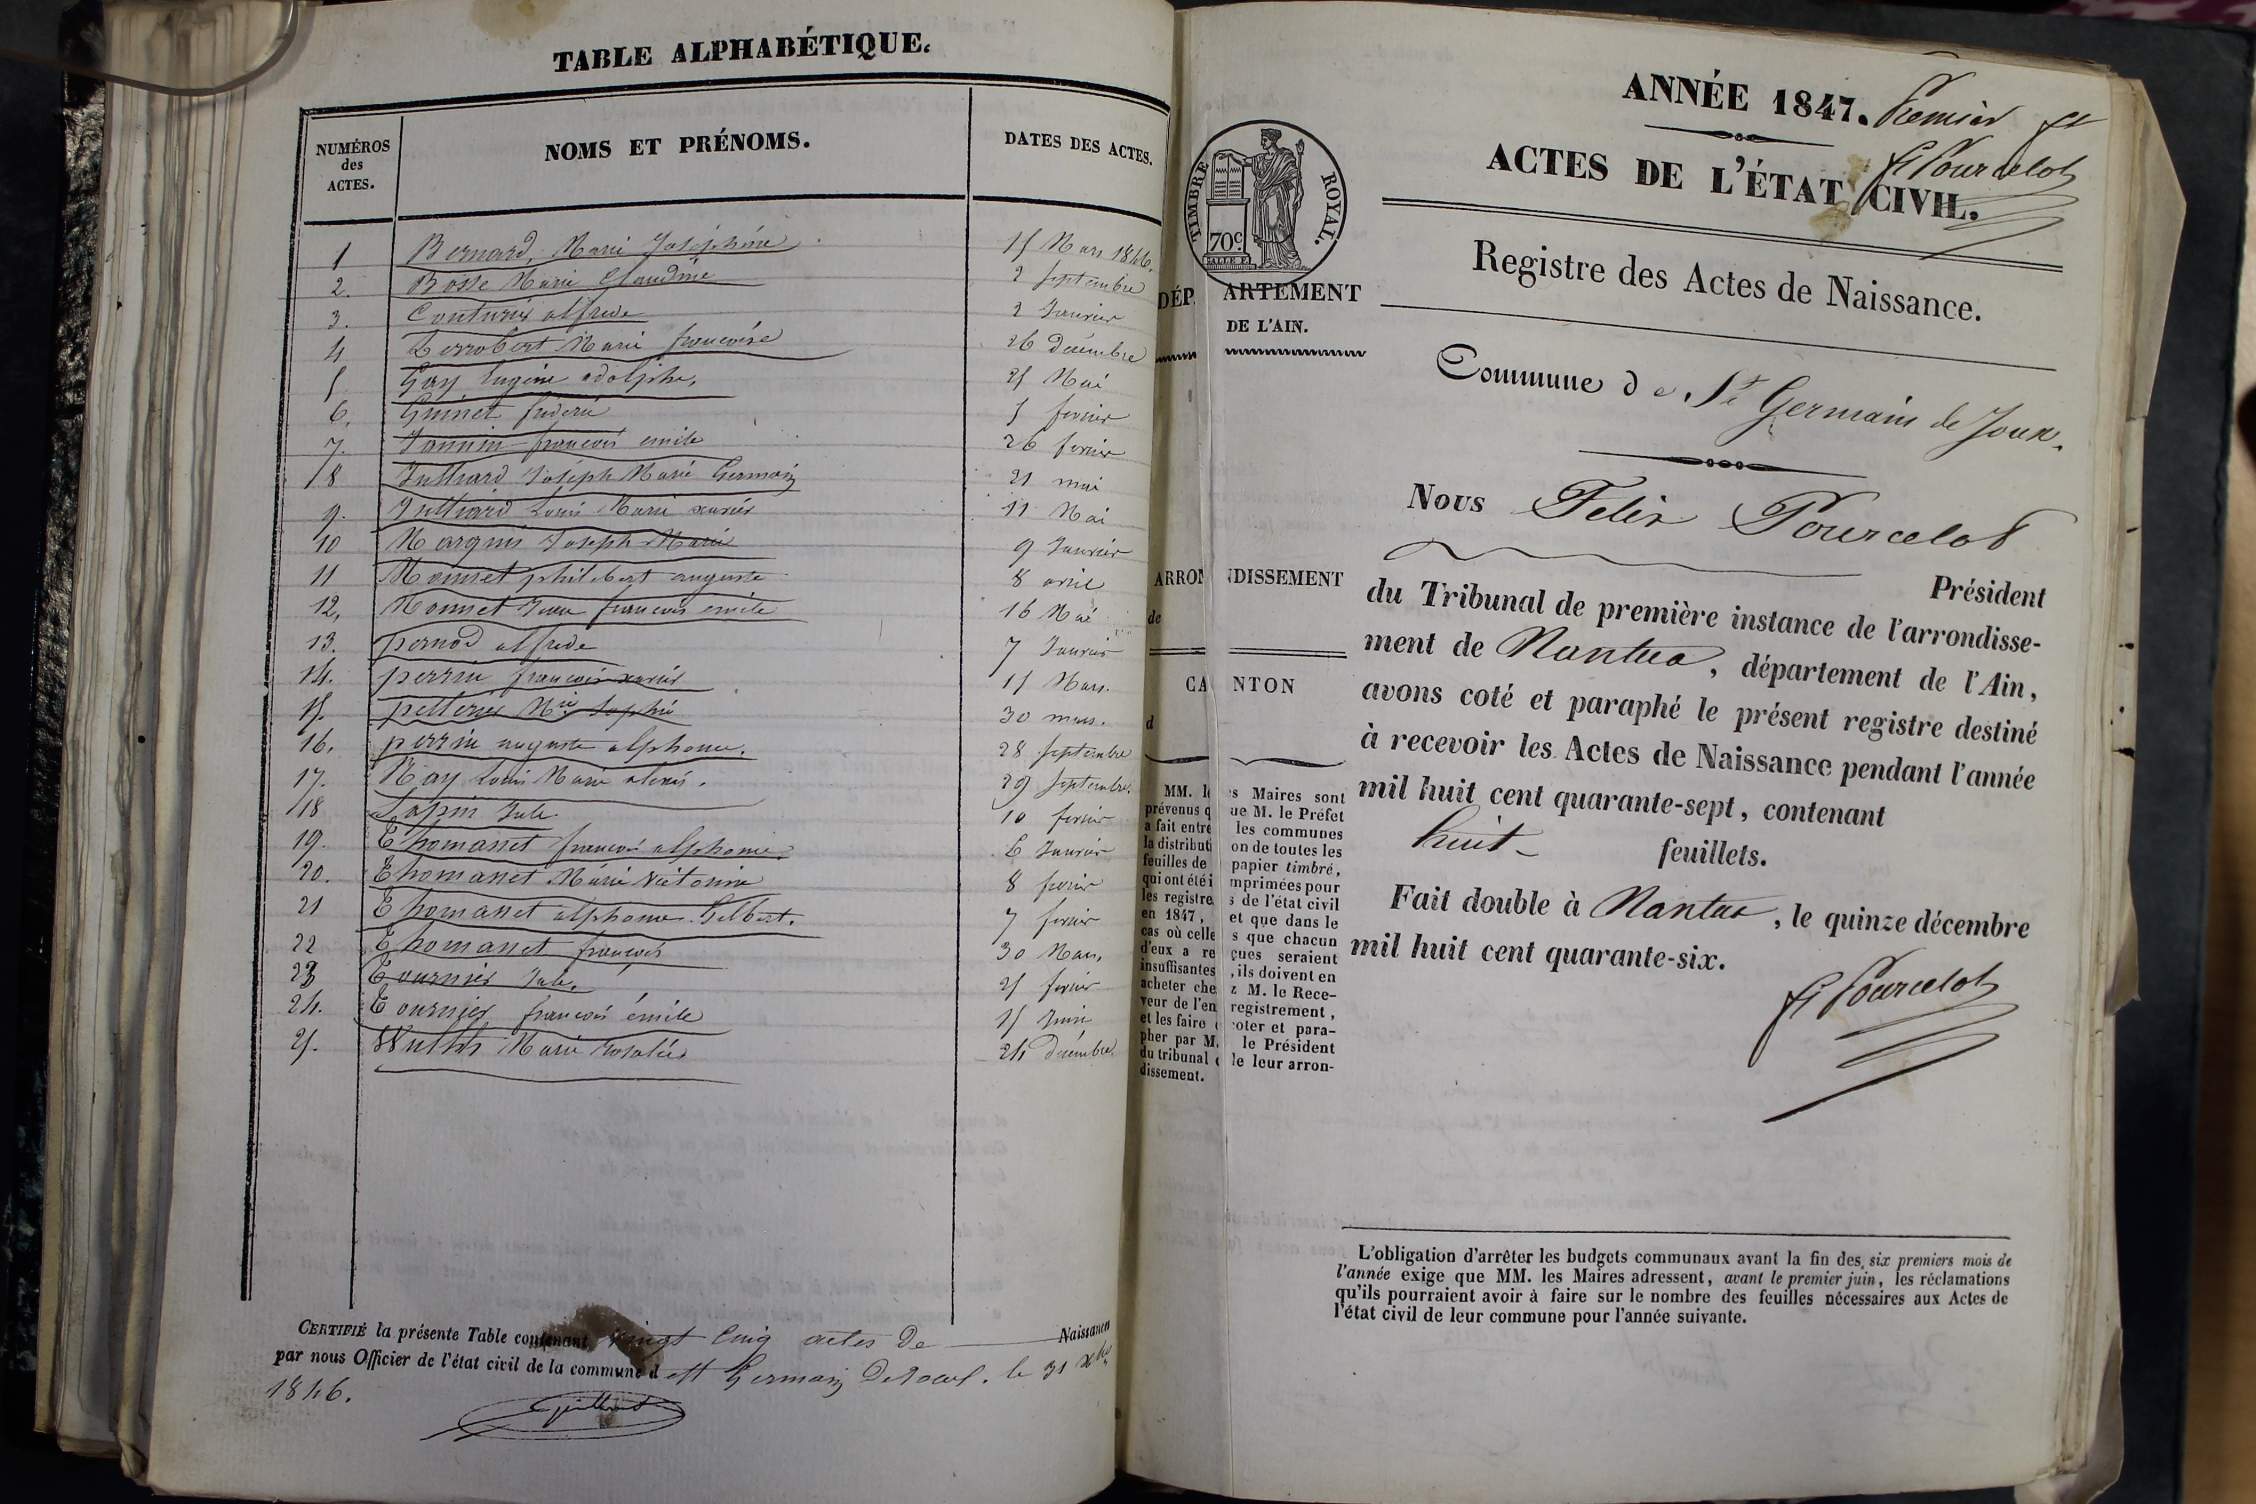 TABLE ALPHABÉTIQUE.
NUMÉROS des ACTES.
NOMS ET PRÉNOMS.
DATES DES ACTES.
1 Bernard, Marie Joséphine 15 Mars 1846.
2. Bosse Marie Claudine 2 Septembre
3. Couturier alfrede 2 Janvier
4 Marie françoise 26 décembre
5 Gay Eugène adolphe, 25 Mai
6. Guinet frederic 5 fevrier
7. Jannin françois emile 26 fevrier
8 Julliard Joseph Marie Germain 21 mai
9. Julliard Louis Marie xavier 11 Mai
10 Marquis Joseph Marie 9 Janvier
11 Monnet philibert auguste 8 avril
12, Monnet Jean françois emile 16 Mai
13. pernod alfrede 7 Janvier
14. perrin françois xavier 15 Mars.
15. Mie Sophie 30 mars.
16. perrin auguste alphonse. 28 Septembre
17. Ray Louis Marie alexis. 29 Septembre.
18 Sapin Jule 10 fevrier
19. Thomasset françois alphonse. 6 Janvier
20. Thomasset Marie Victorine 8 fevrier
21 Thomasset alphonse Gilbert. 7 fevrier
22 Thomasset françois 30 Mars.
23 Tournier Jule. 25 fevrier
24. Tournier françois émile 15 Juin
25. Marie Rosalie 24 décembre.
CERTIFIÉ la présente Table contenant vingt cinq actes de Naissances
par nous Officier de l'état civil de la commune d est Germain de Joux. le 31 Xbre
1846.
ANNÉE 1847. Premier ft
F Pourcelot
ACTES DE L'ÉTAT CIVIL.
TIMBRE ROYAL.
70c.
Registre des Actes de Naissance.
DÉPARTEMENT
DE L'AIN.
Commune de St Germain de Joux.
Nous Felix Pourcelot
Président
ARRONDISSEMENT
de
du Tribunal de première instance de l'arrondisse-
ment de Nantua, département de l'Ain,
CANTON
d
avons coté et paraphé le présent registre destiné
à recevoir les Actes de Naissance pendant l'année
mil huit cent quarante-sept, contenant
huit feuillets.
Fait double à Nantua, le quinze décembre
mil huit cent quarante-six.
F Pourcelot
MM. les Maires sont
prévenus que M. le Préfet
a fait entre les communes
la distribution de toutes les
feuilles de papier timbré,
qui ont été imprimées pour
les registres de l'état civil
en 1847, et que dans le
cas où celles que chacun
d'eux a reçues seraient
insuffisantes, ils doivent en
acheter chez M. le Rece-
veur de l'enregistrement,
et les faire coter et para-
pher par M. le Président
du tribunal de leur arron-
dissement.
L'obligation d'arrêter les budgets communaux avant la fin des six premiers mois de
l'année exige que MM. les Maires adressent, avant le premier juin, les réclamations
qu'ils pourraient avoir à faire sur le nombre des feuilles nécessaires aux Actes de
l'état civil de leur commune pour l'année suivante.